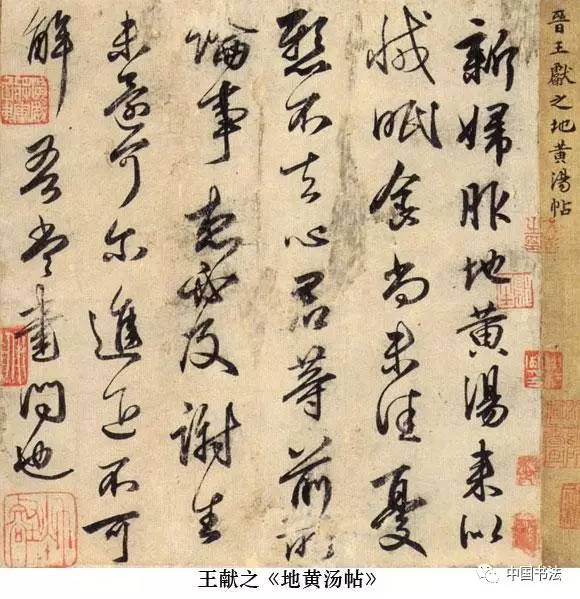 晉王獻之地黄湯帖
新婦服地黄湯来似
減眠食尚未佳憂
懸不去心君等前所
論事想必及謝生
未還可尔進退不可
解吾當書問也
王献之《地黄汤帖》
中国书法